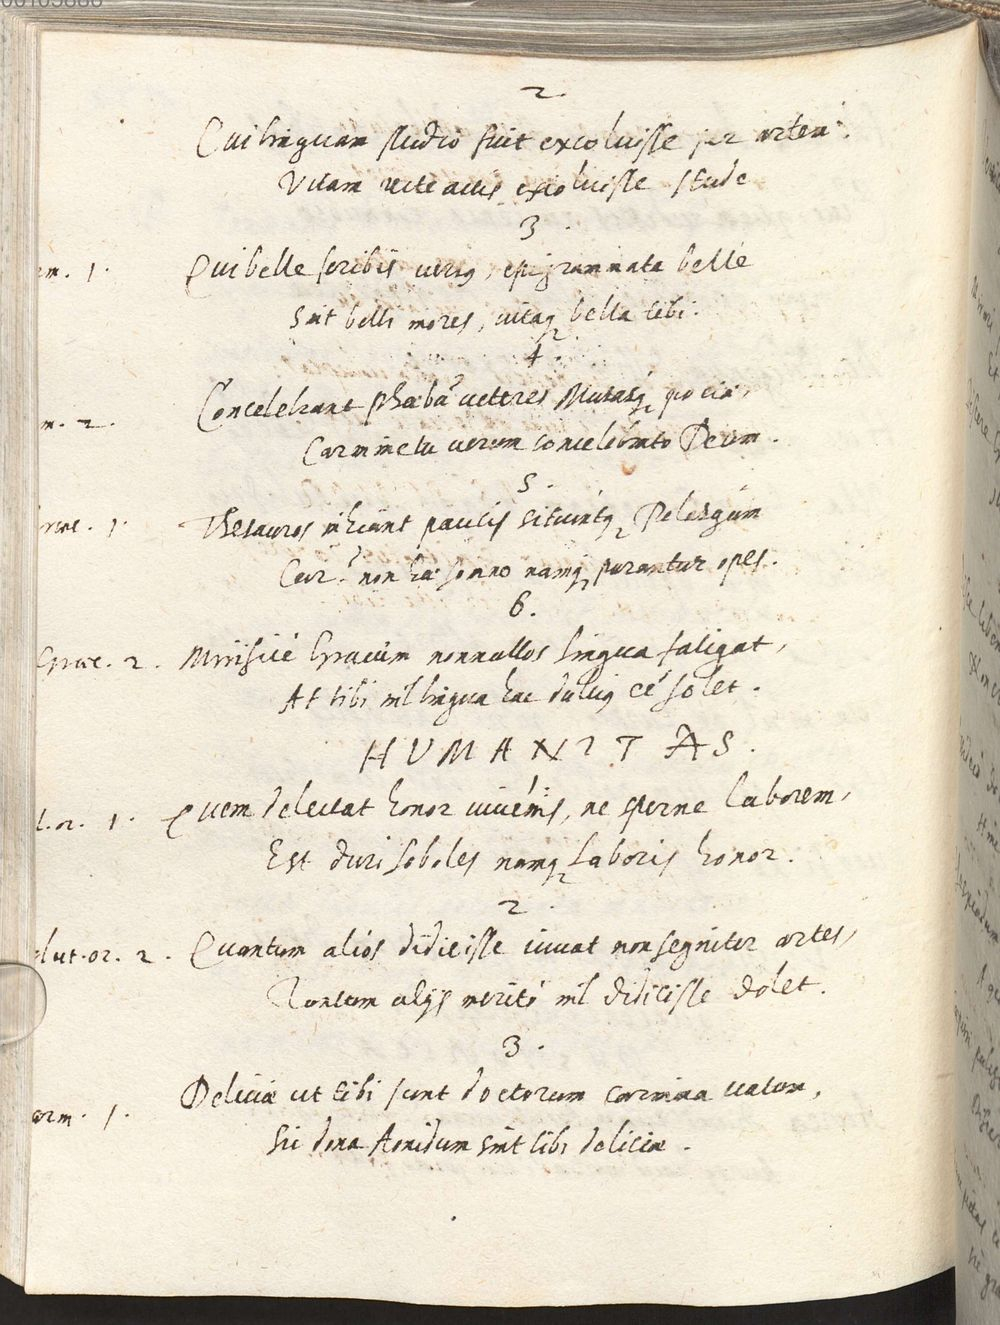 2
Cui linguam studio fuit excoluisse per artem:
Vitam recte actis excoluisse stude
3.
em. 1. Qui belle scribis versus, epigrammata belle
Sint belli mores, vitaq bella tibi.
4.
m. 2. Concelebrant phœbũ veteres Musasq
Carmine tu verum concelebrato Deum.
5.
1. Thesauros inhiant paucis situintq Pelasgûm
Cur? non hæ somno namq parantur opes.
6.
Græc. 2. Mirificé Græcúm nonnullos lingua fatigat,
At tibi nil lingua hac dulcius eẽ solet.
HUMANITAS.
t. or. 1. Quem delectat honor iuvenis, ne sperne laborem,
Est duri soboles namq laboris honor.
2
lut. or. 2. Quantum aliós didicisse iuvat non segniter artes,
Tantum alijs meritó nil didicisse dolet.
3.
arm. 1. Deliciæ ut tibi sunt doctorum carmina vatum,
Sic dona Aonidum sint tibi deliciæ.